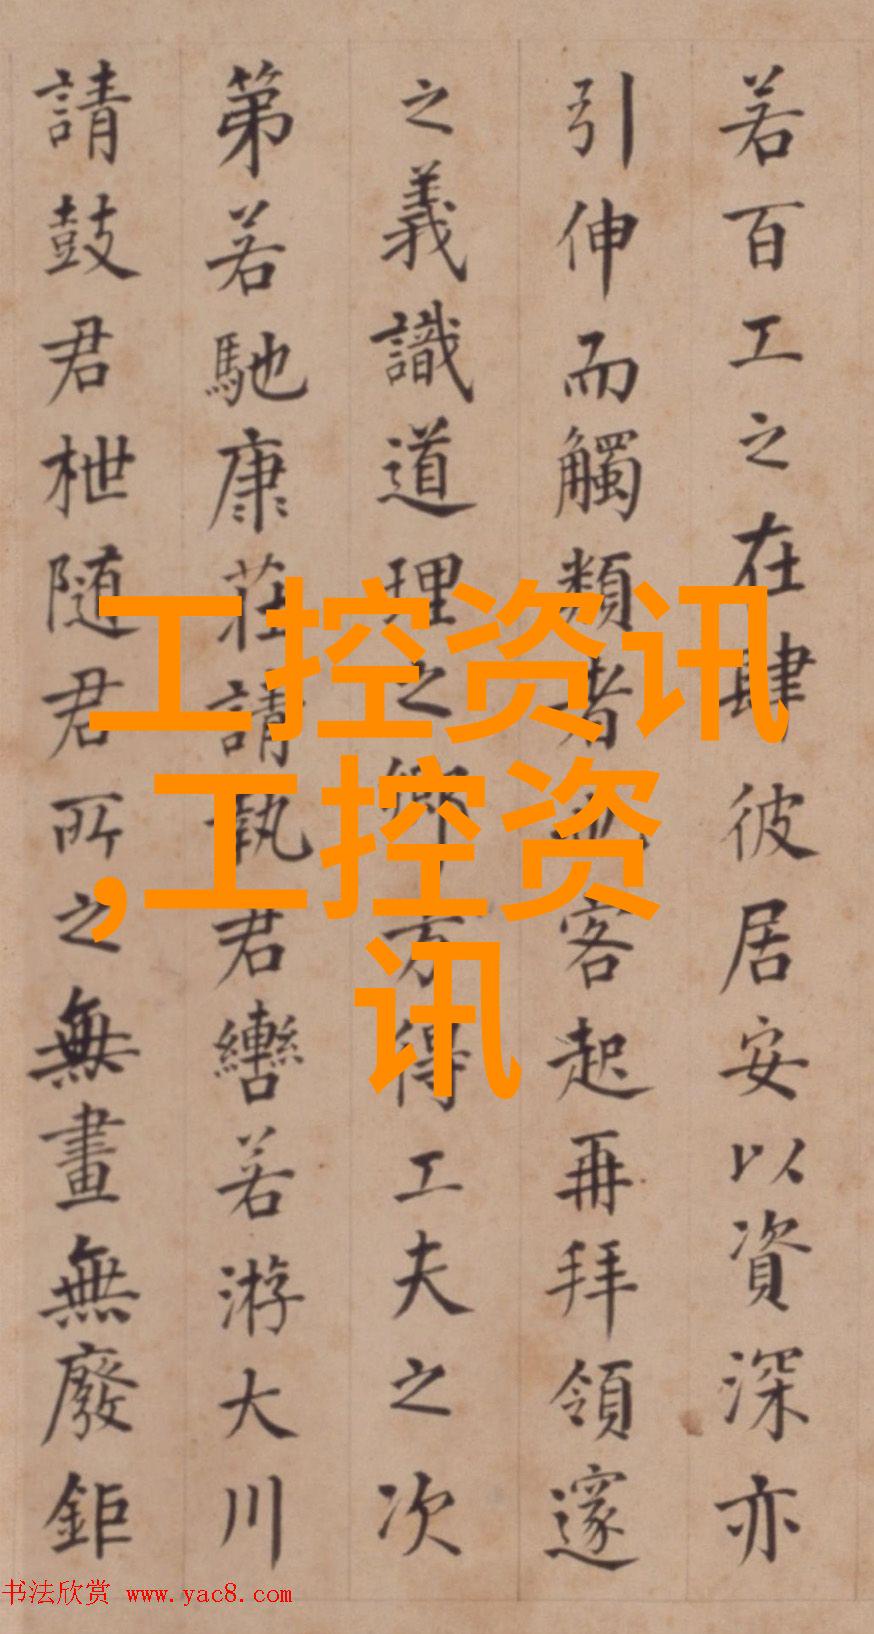 若百工之在肆彼居安以資深亦
引伸而觸類者 客起再拜領邃
之義識道理之鄉方得工夫之次
第若馳康莊請執君轡若游大川
請鼓君枻随君所之無畫無廢鉅
工控资讯
,工控资
讯
书法欣赏 www.yac8.com